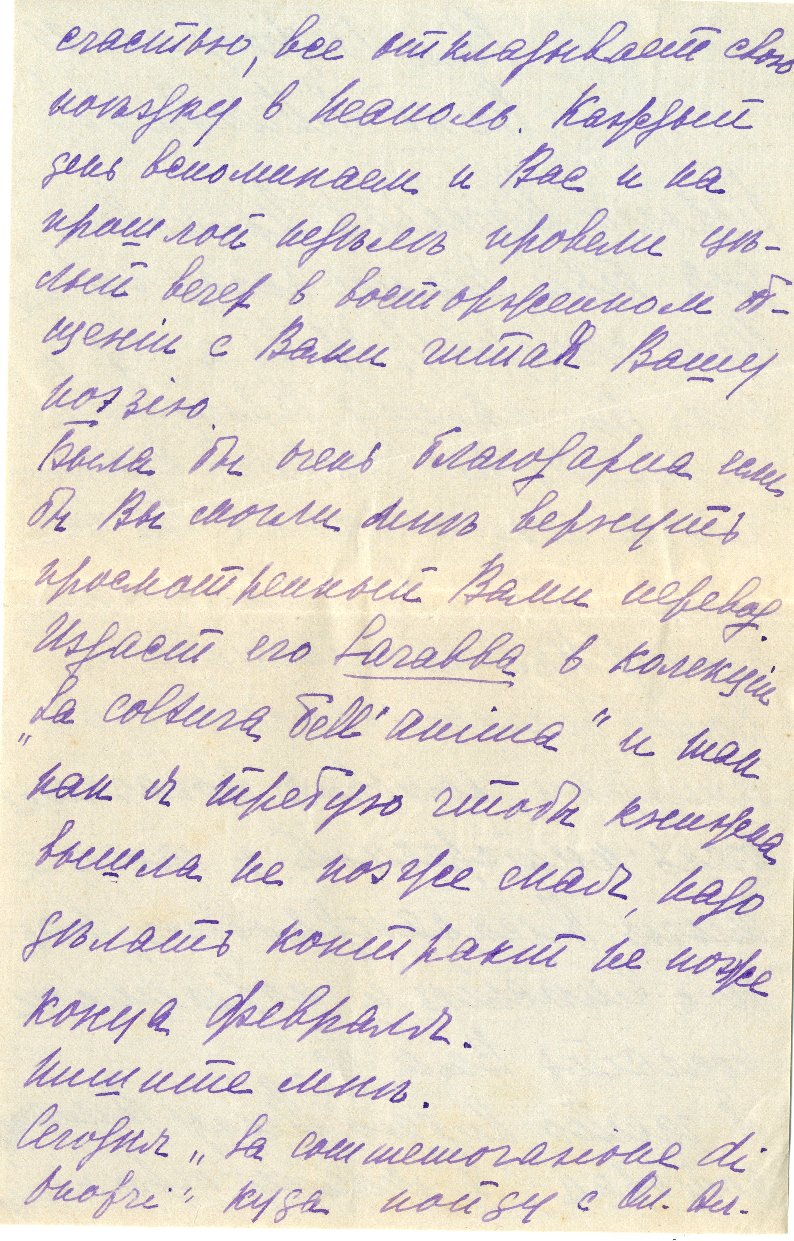 счастью, все откладывает свою
поѣздку в Неаполь. Каждый
день вспоминаем и Вас и на
прошлой недѣлѣ провели цѣ-
лый вечер в восторженном об-
щеніи с Вами читая Вашу
поэзію.
Была бы очень благодарна если
бы Вы могли мнѣ вернуть
просмотренный Вами перевод.
Издает его Carabba в колекціи
„La coltura dell'anima" и так
как я требую чтобы книжка
вышла не позже мая, надо
дѣлать контракт не позже
конца февраля.
Пишите мнѣ.
Сегодня „La commemorazione di
Onofri" куда пойду с Ол. Ал.-